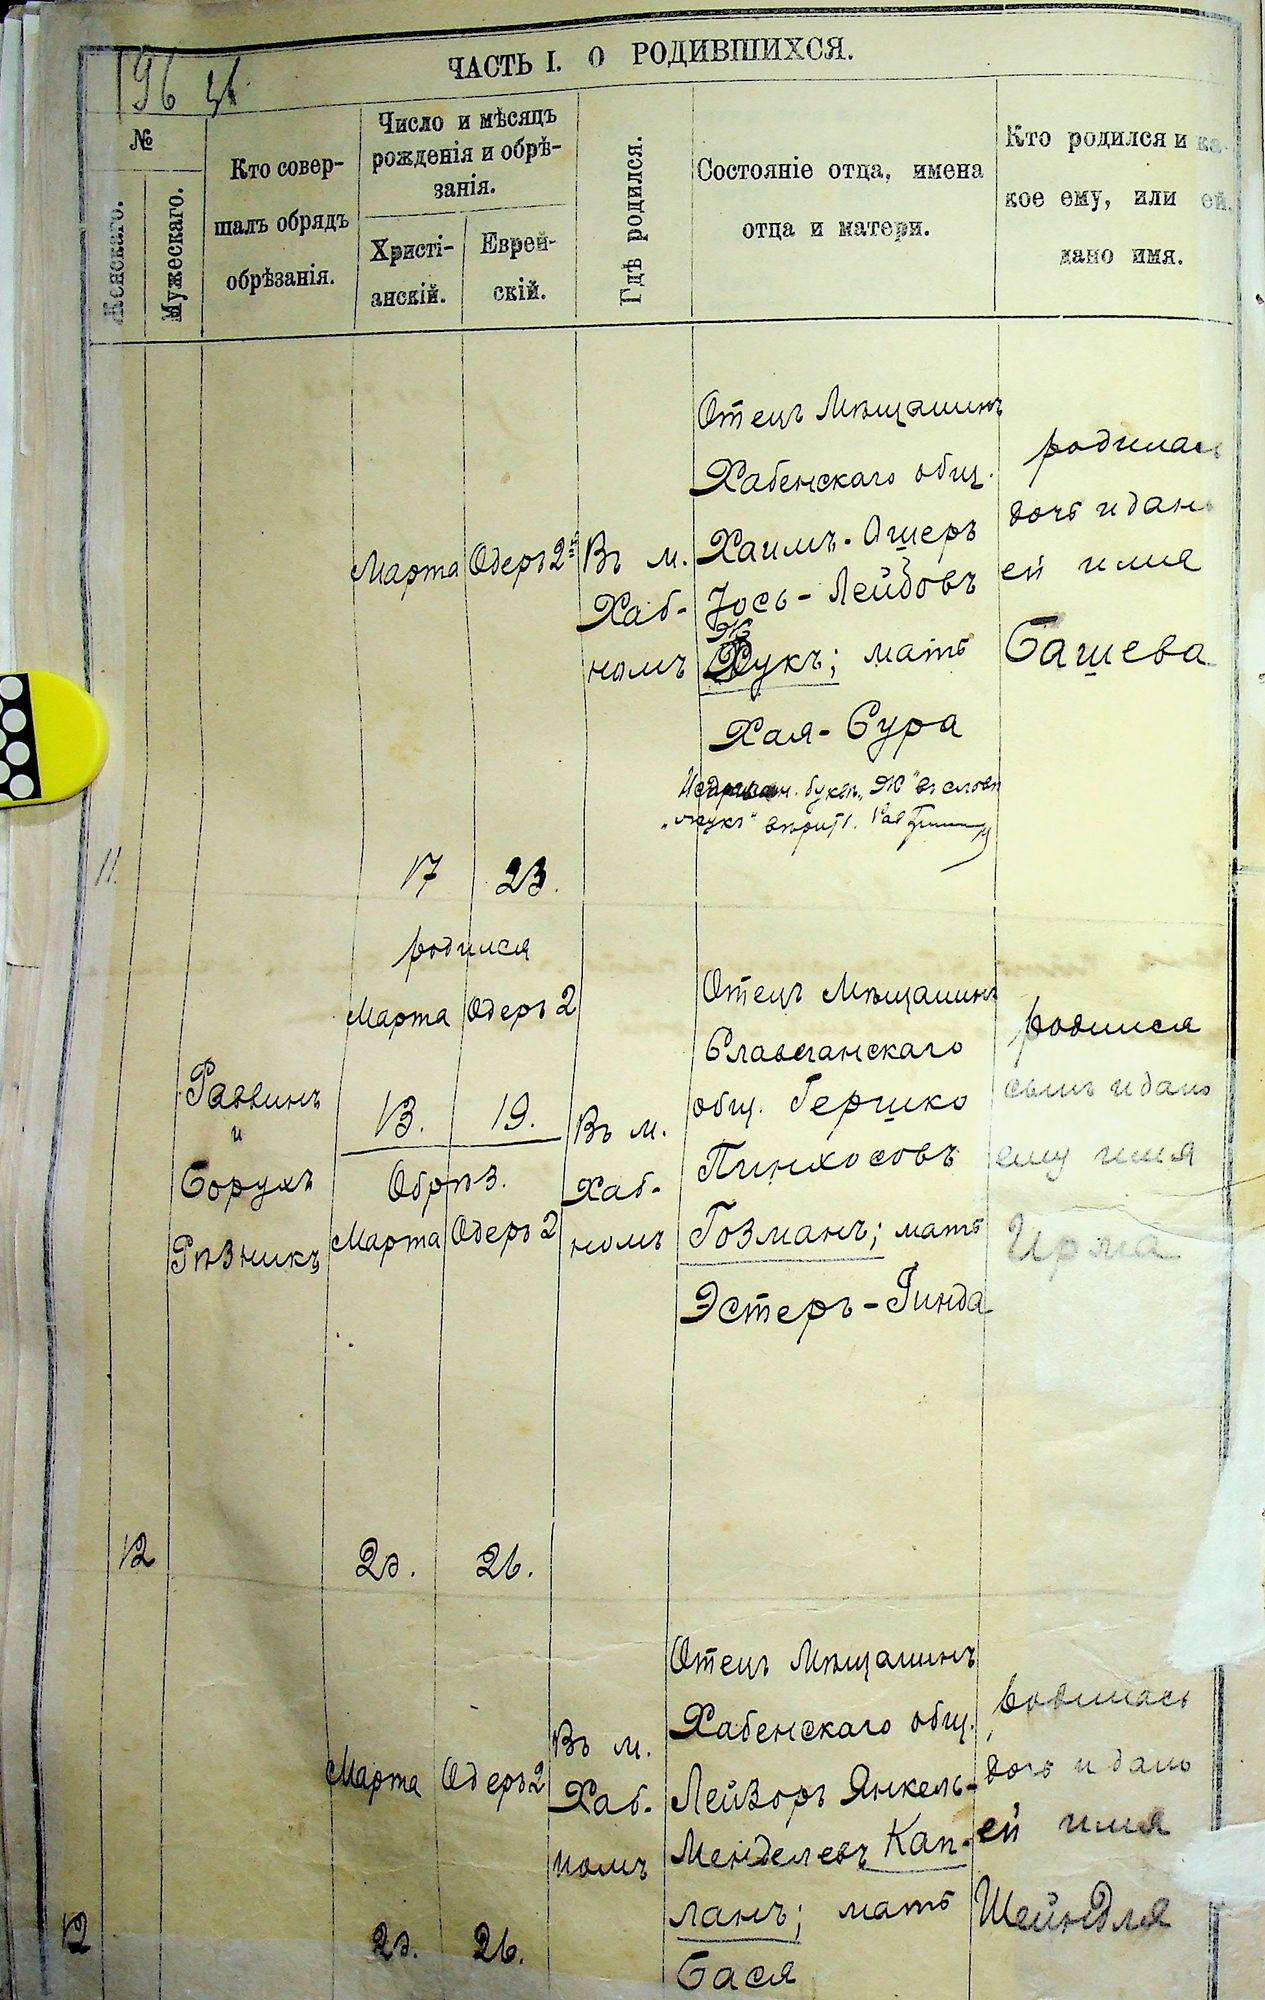 196
ЧАСТЬ I. О РОДИВШИХСЯ.
№
Женскаго.
Мужескаго.
Кто совер-
шалъ обрядъ
обрѣзанія.
Число и мѣсяцъ
рожденія и обрѣ-
занія.
Христі-
анскій.
Еврей-
скій.
Гдѣ родился.
Состояніе отца, имена
отца и матери.
Кто родился и ка-
кое ему, или ей,
дано имя.
11.
Марта
17
Одеръ 2й
23.
Въ м.
Хаб-
номъ
Отецъ Мѣщанинъ
Хабенскаго общ.
Хаимъ-Ошеръ
Іось-Лейзовъ
Жукъ; мать
Хая-Сура
букв. „Ж" въ словѣ
„Жукъ" вѣрить. Рав
родилась
дочь и дано
ей имя
Башева
12
Раввинъ
и
Борухъ
Рѣзникъ
родился
Марта Одеръ 2
13. 19.
Обрѣз.
Марта Одеръ 2
20. 26.
Въ м.
Хаб-
номъ
Отецъ Мѣщанинъ
общ. Гершко
Пинхосовъ
Гозманъ; мать
Эстеръ-Гинда
родился
сынъ и дано
ему имя
Ирма
12
Марта
20.
Одеръ 2
26.
Въ м.
Хаб-
номъ
Отецъ Мѣщанинъ
Хабенскаго общ.
Лейзоръ Янкель-
Менделевъ Кап-
ланъ; мать
Бася
родилась
дочь и дано
ей имя
Шейндля